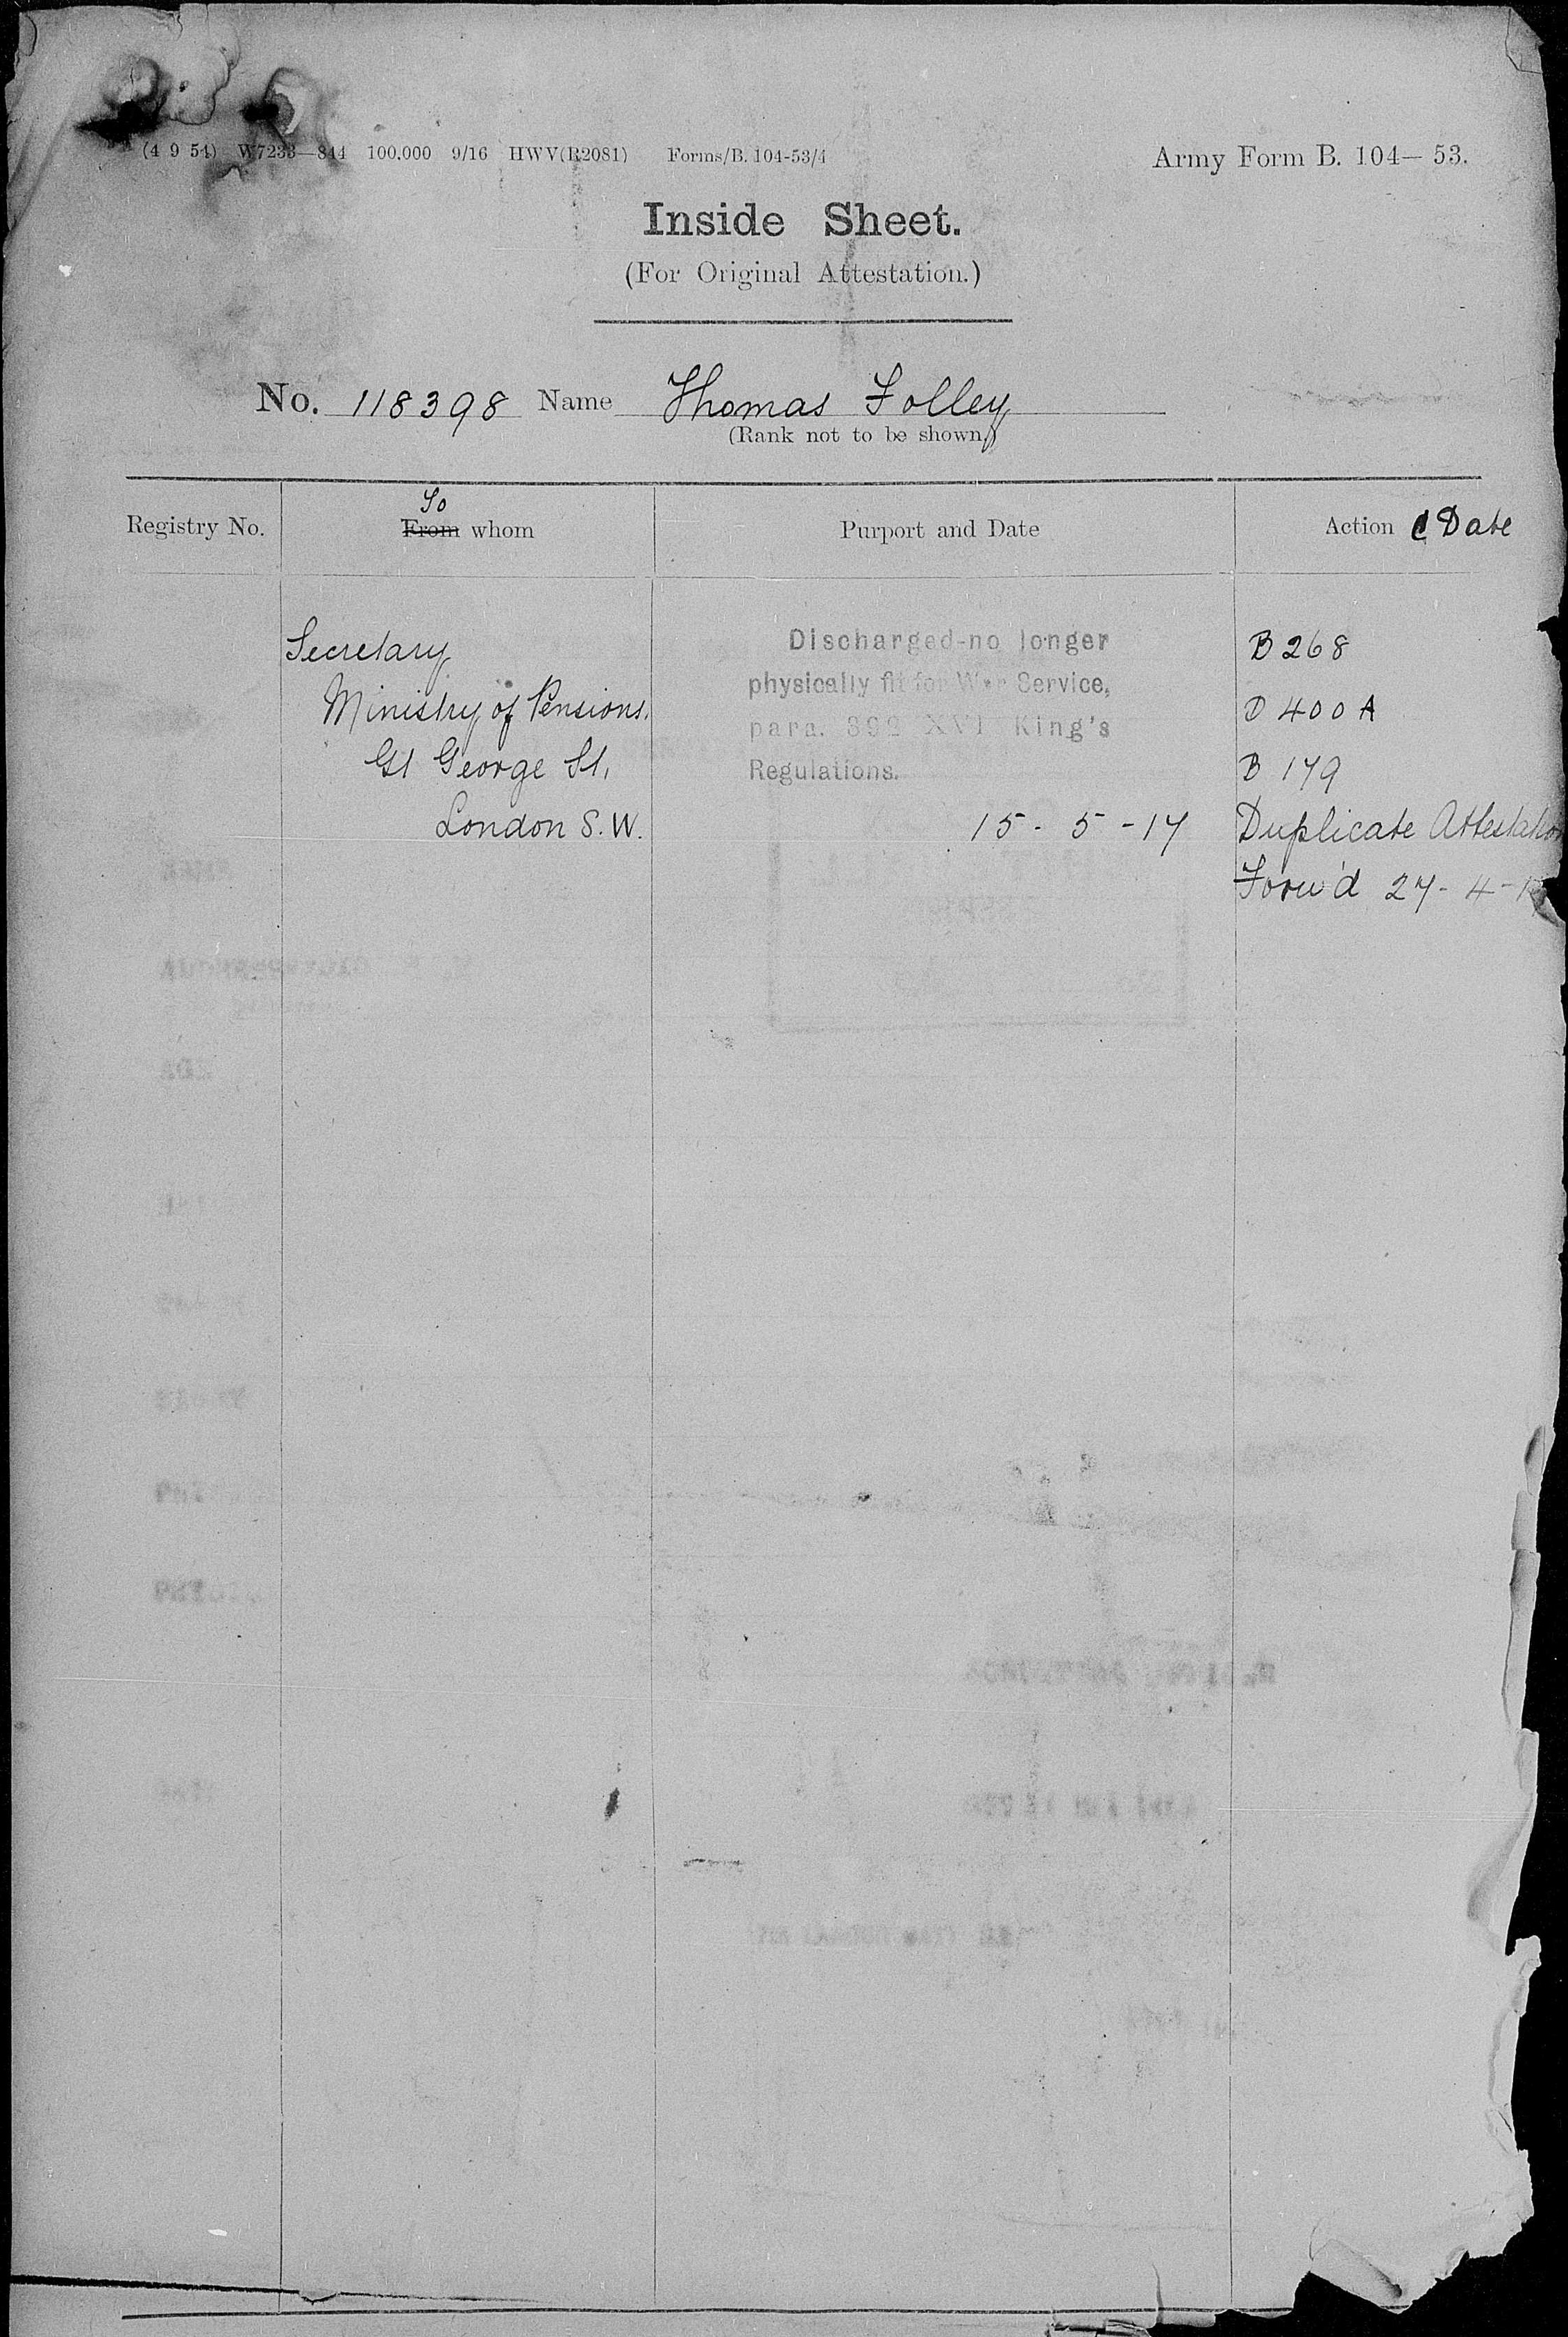 (4 9 54) W7233—844 100,000 9/16 HWV(R2081) Forms/B. 104-53/4
Army Form B. 104—53.
Inside Sheet.
(For Original Attestation.)
No. 118398 Name Thomas Folley
(Rank not to be shown.)
To
Registry No. From whom Purport and Date Action & Date
Secretary Discharged-no longer B 268
Ministry of Pensions. physically fit for War Service, D 400 A
para. 392 XVI King's
Gt George St, Regulations. B 179
London S.W. 15 - 5 - 17 Duplicate Attestation
Forw'd 27 - 4 -